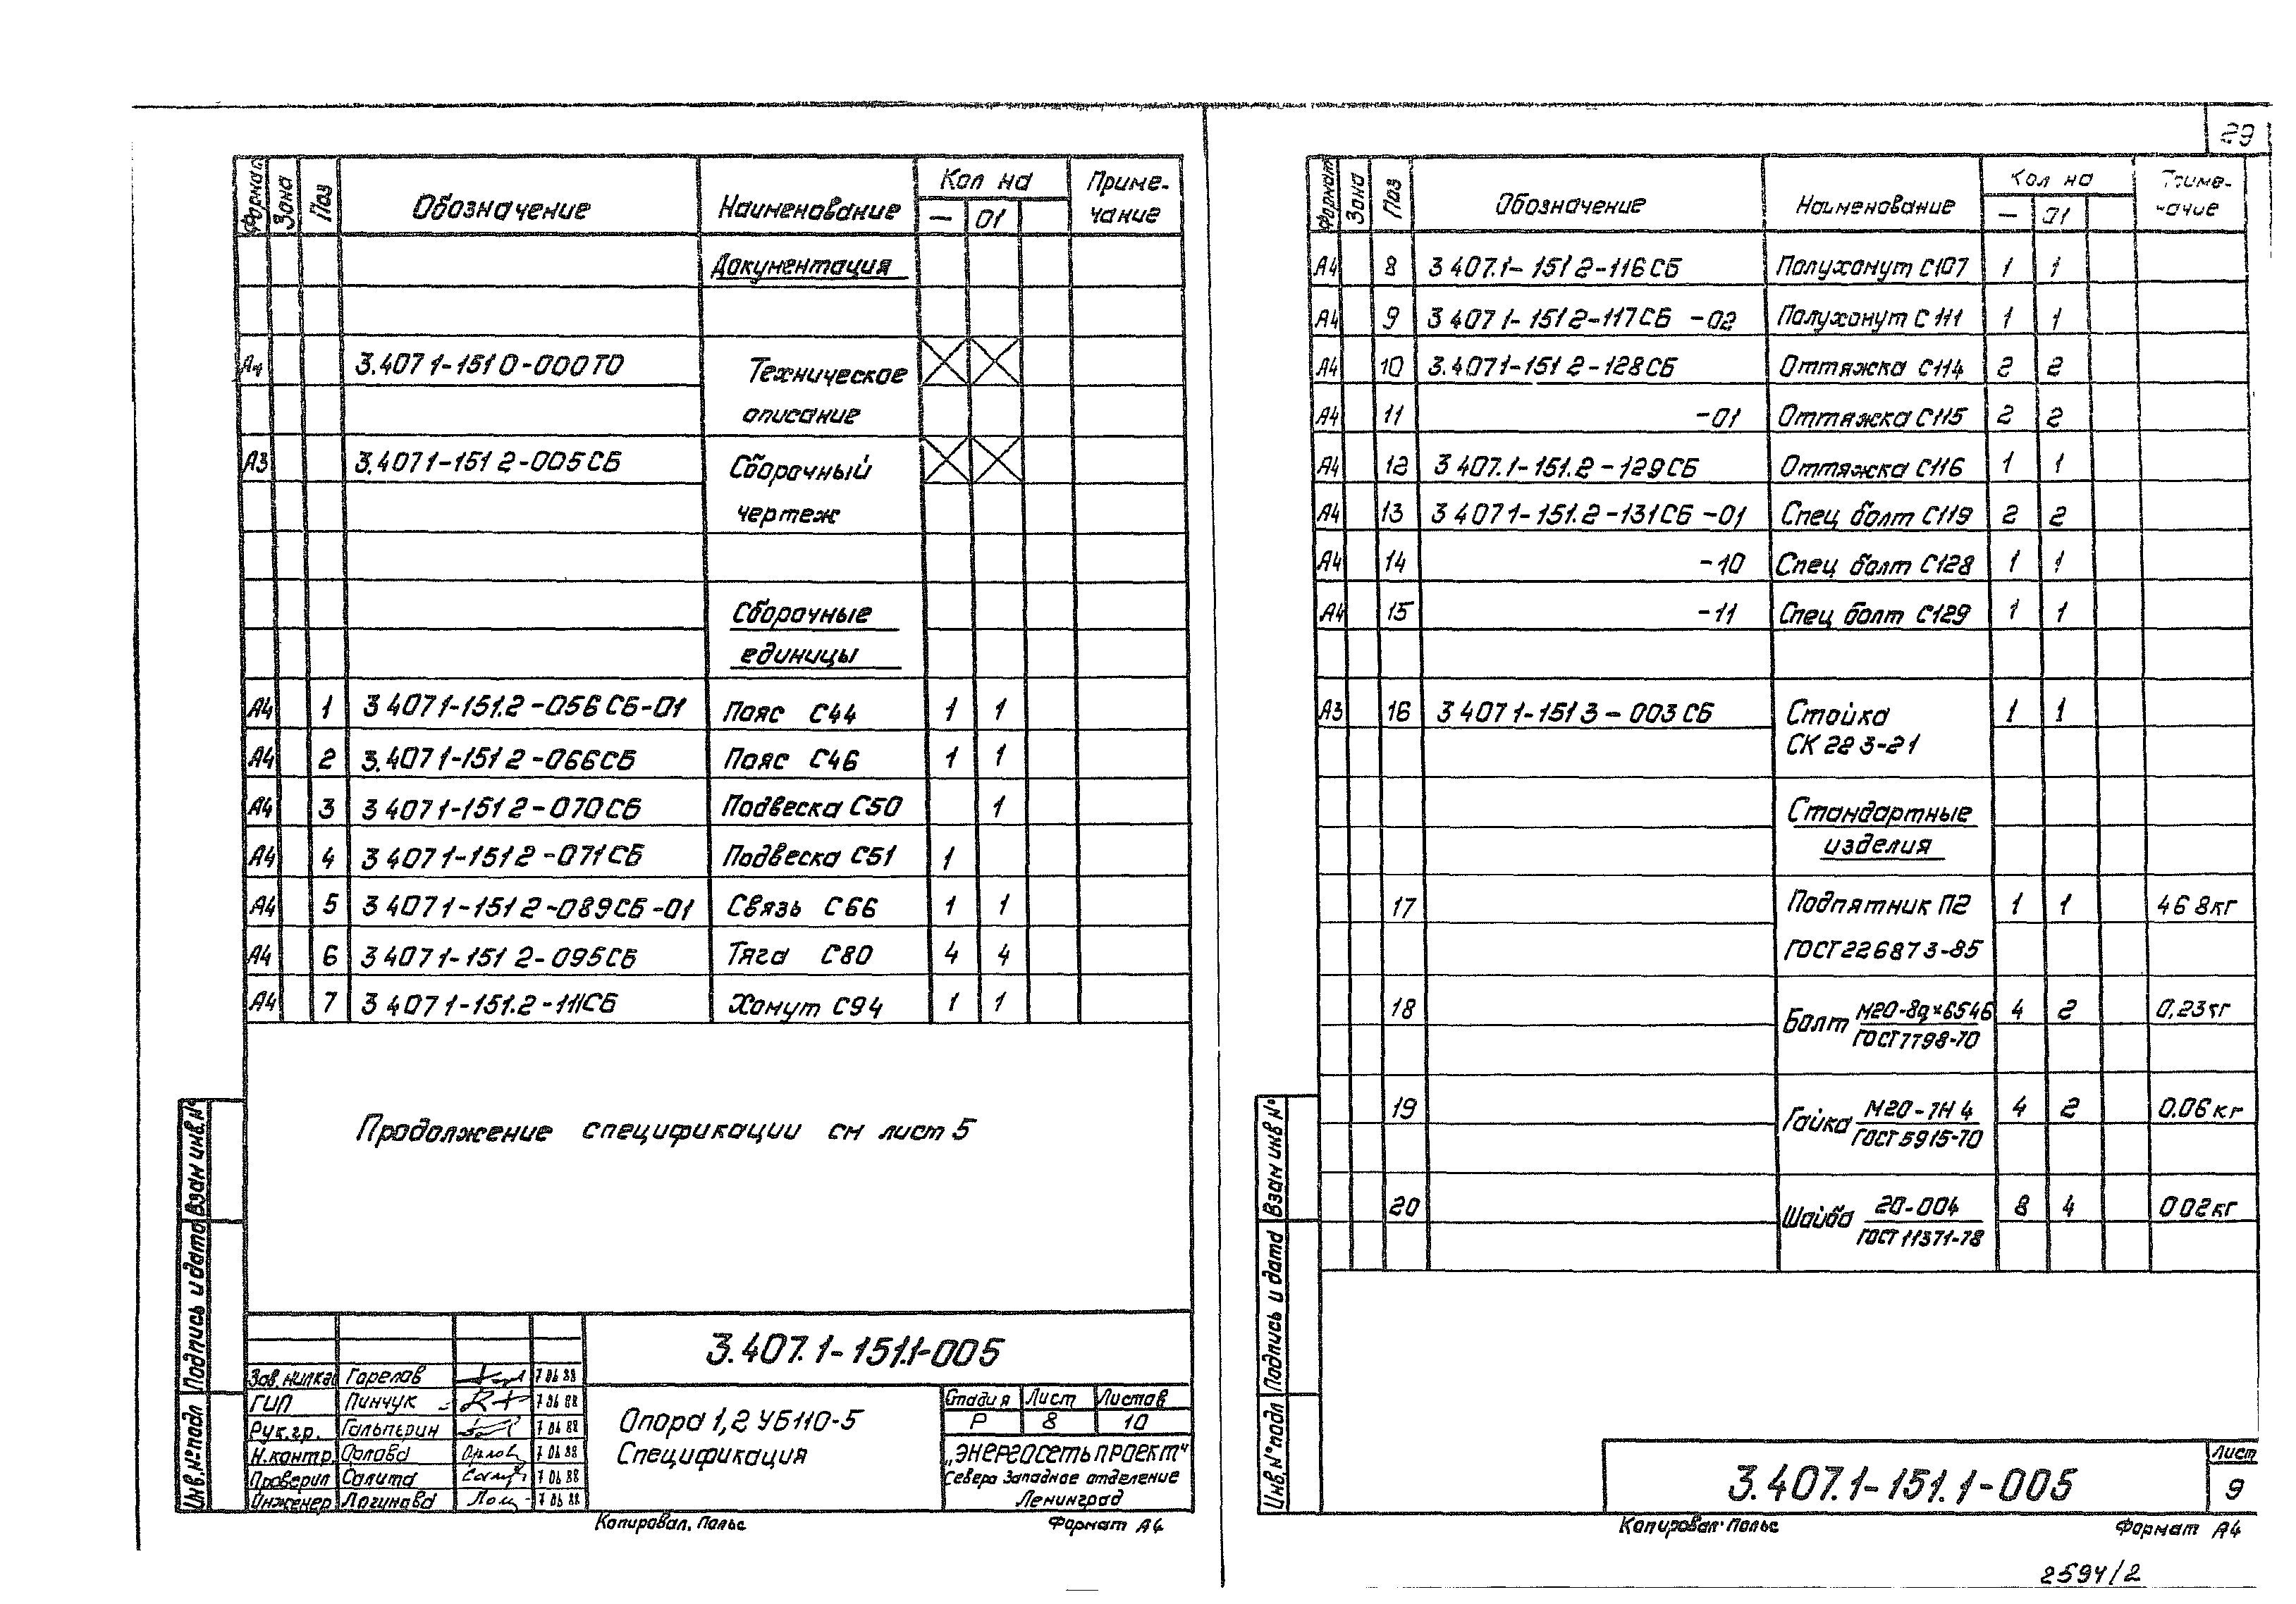 29
Формат Зона Поз Обозначение Наименование Кол на Приме-
— 01 чание
Документация
А4 3.407 1-151 0-000ТО Техническое
описание
А3 3.407 1-151 2-005СБ Сборочный
чертеж
Сборочные
единицы
А4 1 3 407 1-151.2-056СБ-01 Пояс С44 1 1
А4 2 3.407 1-151 2-066СБ Пояс С46 1 1
А4 3 3 407 1-151 2-070СБ Подвеска С50 1
А4 4 3 407 1-151 2-071СБ Подвеска С51 1
А4 5 3 407 1-151 2-089СБ-01 Связь С66 1 1
А4 6 3 407 1-151 2-095СБ Тяга С80 4 4
А4 7 3 407 1-151.2-111СБ Хомут С94 1 1
Продолжение спецификации см лист 5
Взам инв.№
Подпись и дата
Инв.№подл
3.407.1-151.1-005
Горелов 7 06 88
ГИП Пинчук 7 06 88
Рук.гр. Гальперин 7 06 88
Н.контр. Орлова 7 06 88
Проверил Салита 7 06 88
Инженер Логинова 7 06 88
Опора 1,2 УБ110-5
Спецификация
Стадия Лист Листов
Р 8 10
„ЭНЕРГОСЕТЬПРОЕКТ"
Северо Западное отделение
Ленинград
Копировал. Польс Формат А4
Формат Зона Поз Обозначение Наименование Кол на Приме-
— 01 чание
А4 8 3 407.1-151 2-116СБ Полухомут С107 1 1
А4 9 3 407 1-151 2-117СБ -02 Полухомут С 111 1 1
А4 10 3.407 1-151 2-128СБ Оттяжка С114 2 2
А4 11 -01 Оттяжка С115 2 2
А4 12 3 407.1-151.2-129СБ Оттяжка С116 1 1
А4 13 3 407 1-151.2-131СБ -01 Спец болт С119 2 2
А4 14 -10 Спец болт С128 1 1
А4 15 -11 Спец болт С129 1 1
А3 16 3 407 1-151 3-003 СБ Стойка 1 1
СК 22 3-21
Стандартные
изделия
17 Подпятник П2 1 1 46 8кг
ГОСТ 22687 3-85
18 Болт М20-8g×6546 4 2 0,23кг
ГОСТ 7798-70
19 Гайка М20-7Н 4 4 2 0.06кг
ГОСТ 5915-70
20 Шайба 20-004 8 4 0 02кг
ГОСТ 11371-78
Взам инв №
Подпись и дата
Инв.№подл
3.407.1-151.1-005
Лист
9
Копировал Польс Формат А4
2594/2